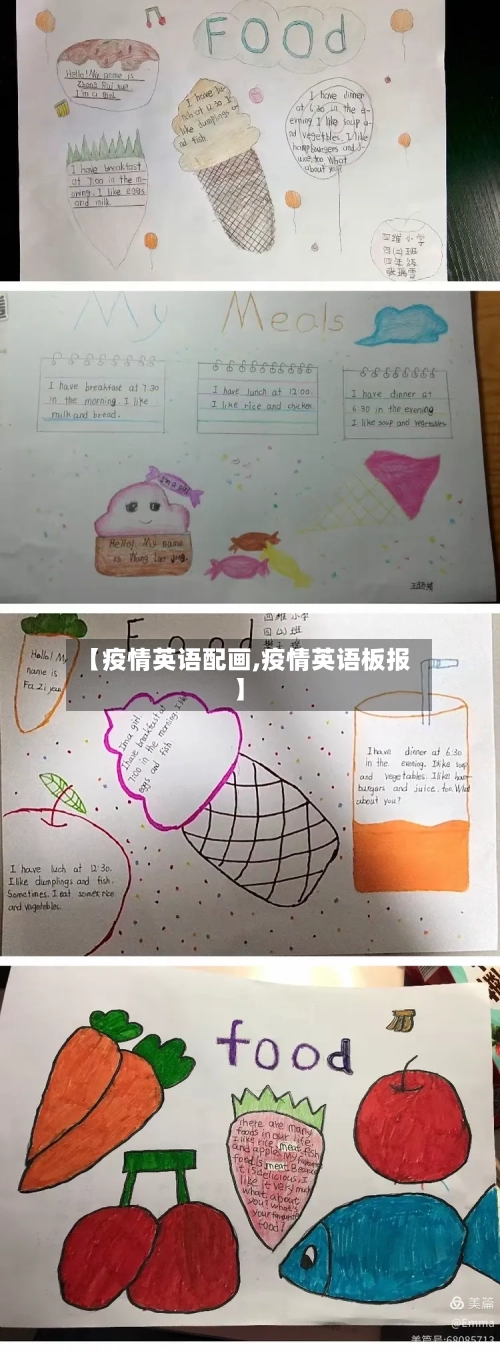 FOOD
Hello! My name is
Zhang Rui xue.
I'm a girl.
I have lu-
nch at 12:30 I
like dumplings a-
nd fish.
I have dinner
at 6:30 in the e-
vening. I like soup a-
nd vegetables. I like
hamburgers and j-
uice, too. What
about you?
I have breakfast
at 7:00 in the m-
orning. I like eggs
and milk.
四维小学
四(2)班
四年级
张瑞雪
My Meals
I have breakfast at 7:30
in the morning. I like
milk and bread.
I have lunch at 12:00.
I like rice and chicken
I have dinner at
6:30 in the evening
I like soup and vegetables.
I'm a girl
Hello! My name
is Wang
Food
四维小学
四(2)班
【疫情英语配画,疫情英语板报
】
Hello! My
name is
Fa Zi
I'm a girl.
I have breakfast at
7:00 in the morning. I like
eggs and fish
I have dinner at 6:30
in the evening. I like soup
and vegetables. I like ham-
burgers and juice, too. What
about you?
I have luch at 12:30.
I like dumplings and fish.
Sometimes. I eat some rice
and vegetables.
food
There are many
foods in our life.
I like rice, meat, fish
and apples. My favourite
food is meat. Because
it is delicious. I
like it very much
what about
you? what's
your favourite
food?
美篇
@Emma
美篇号:68085713